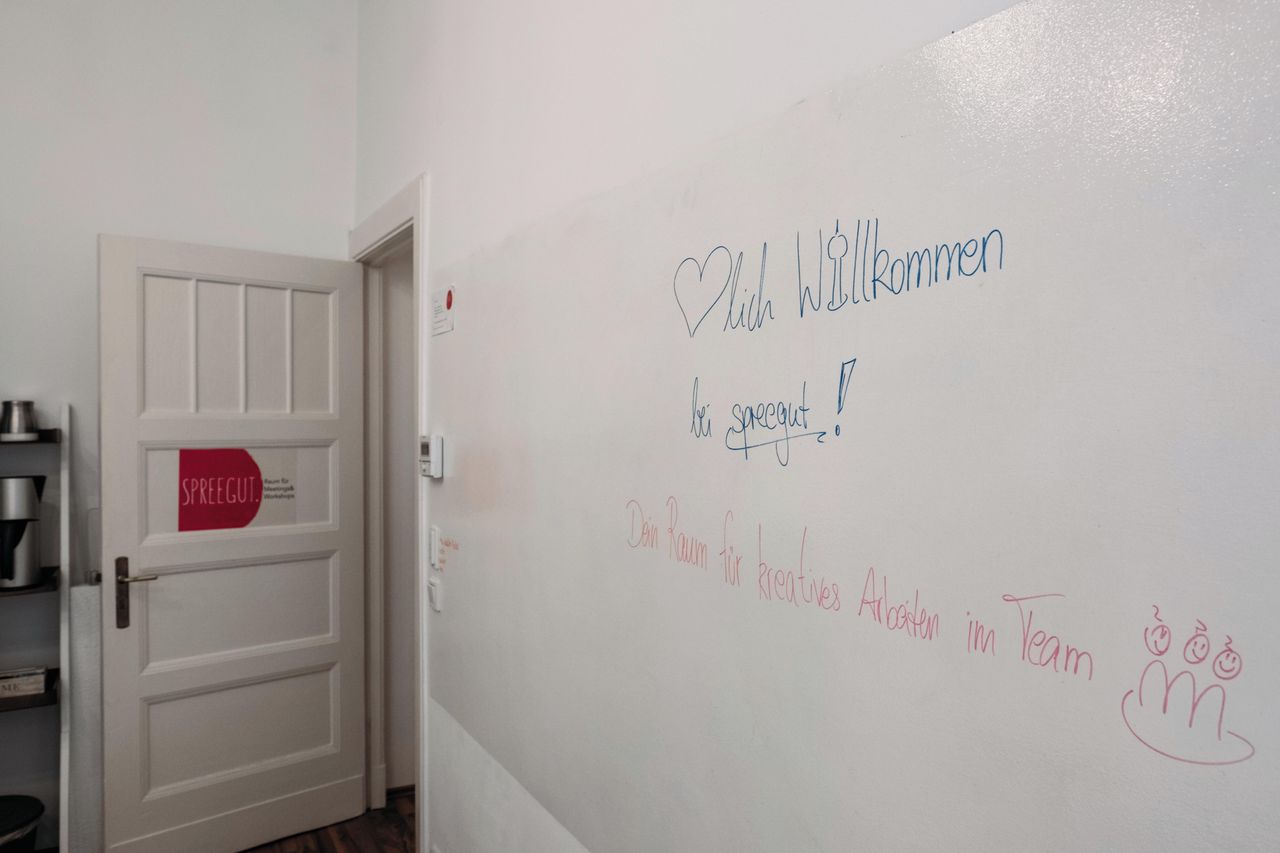 SPREEGUT.
Raum für
Meetings&
Workshops
♡lich Willkommen
bei spreegut!
Dein Raum für kreatives Arbeiten im Team